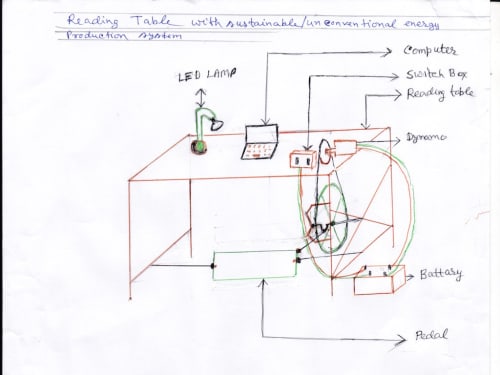 Reading Table with sustainable/unconventional energy
Production system
Computer
LED LAMP
Switch Box
Reading table
Dynamo
Battary
Pedal